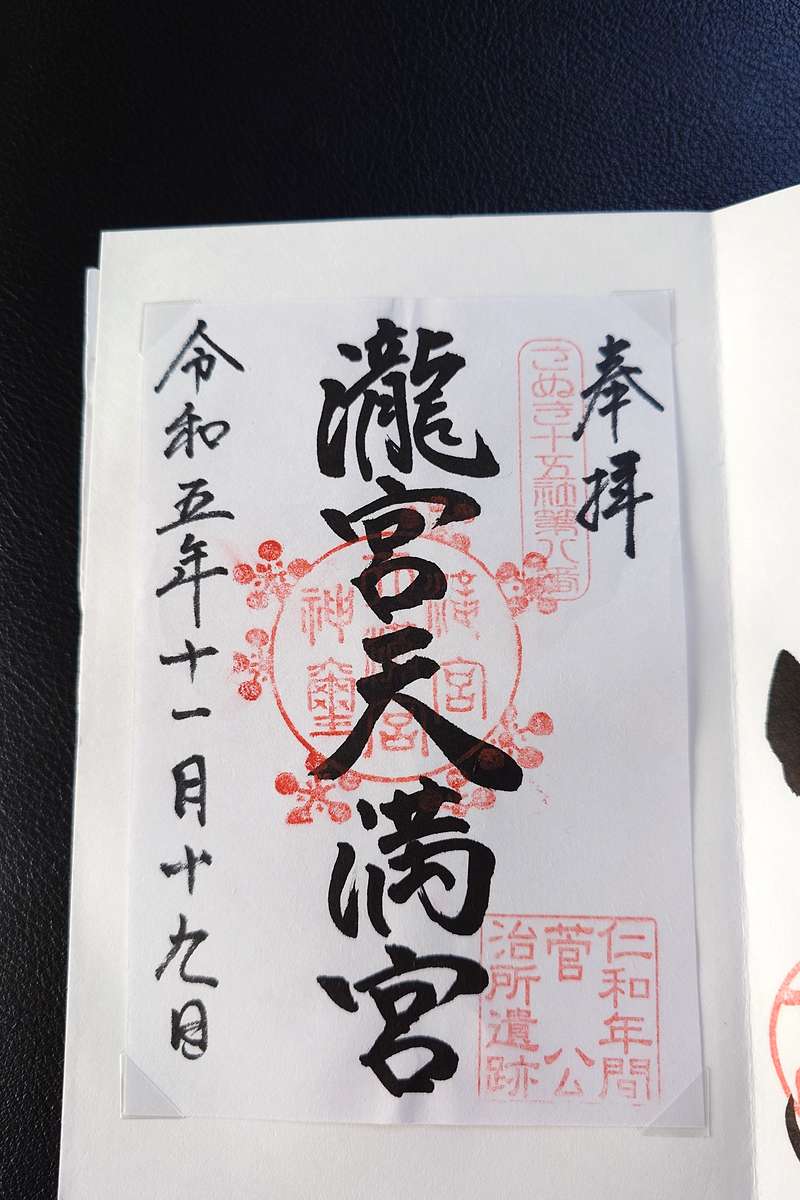 奉拝
さぬき十五社第八番
瀧宮天満宮
瀧宮
天満宮
神璽
仁和年間
菅公
治所遺跡
令和五年十一月十九日